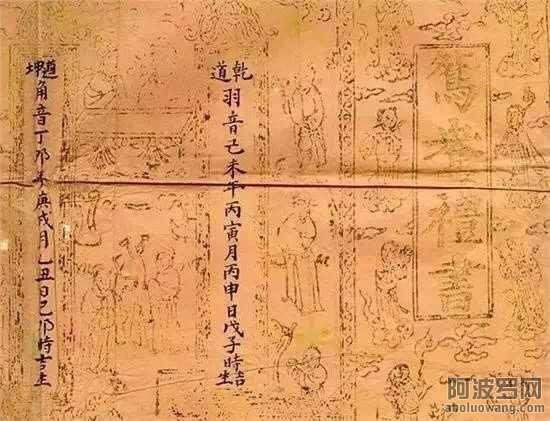 鴛鴦禮書
乾道
羽音己未年丙寅月丙申日戊子時吉生
坤道
角音丁卯年庚戌月乙丑日己卯時吉生
阿波罗网
aboluowang.com